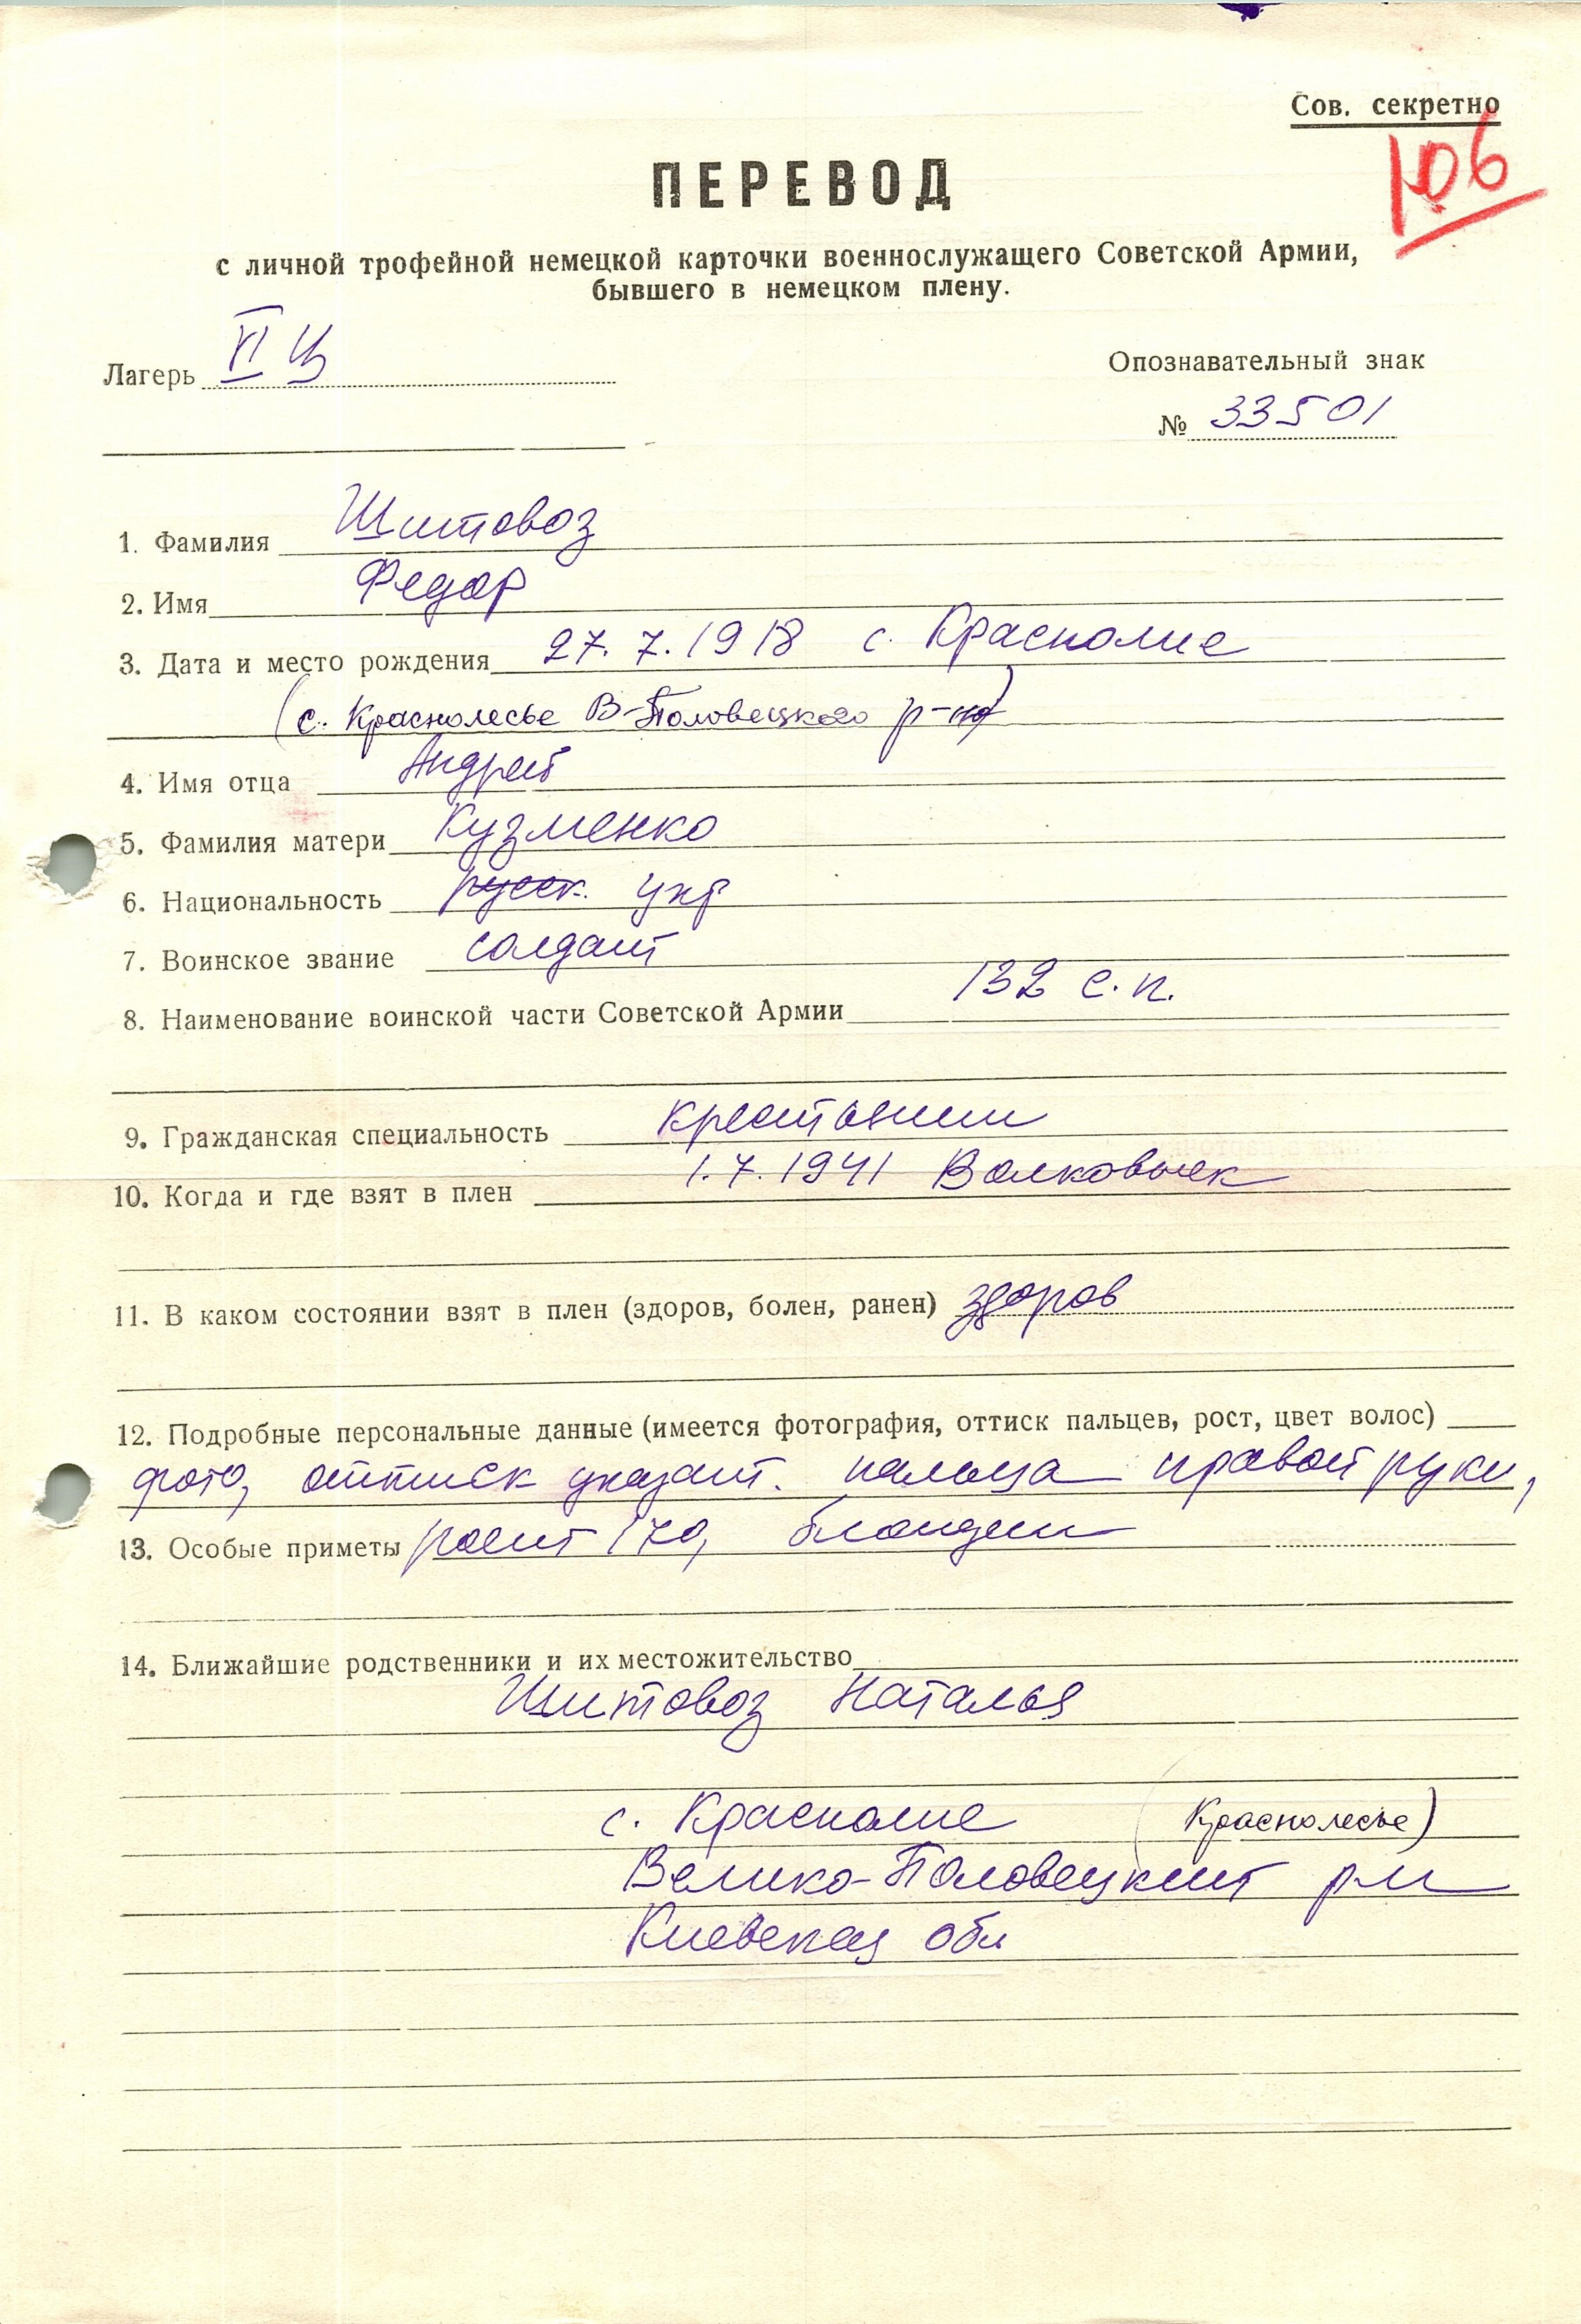 Сов. секретно
106
ПЕРЕВОД
с личной трофейной немецкой карточки военнослужащего Советской Армии,
бывшего в немецком плену.
Лагерь VI Ц
Опознавательный знак
№ 33501
1. Фамилия Шитовоз
2. Имя Федор
3. Дата и место рождения 27.7.1918 с. Красполие
(с. Краснолесье В-Половецкого р-на)
4. Имя отца Андрей
5. Фамилия матери Кузменко
6. Национальность русск. укр
7. Воинское звание солдат
8. Наименование воинской части Советской Армии 132 с.п.
9. Гражданская специальность крестьянин
10. Когда и где взят в плен 1.7.1941 Волковыск
11. В каком состоянии взят в плен (здоров, болен, ранен) здоров
12. Подробные персональные данные (имеется фотография, оттиск пальцев, рост, цвет волос)
фото, оттиск указат. пальца правой руки,
13. Особые приметы рост 170, блондин
14. Ближайшие родственники и их местожительство
Шитовоз Наталья
с. Красполие (Краснолесье)
Велико-Половецкий р-н
Киевская обл